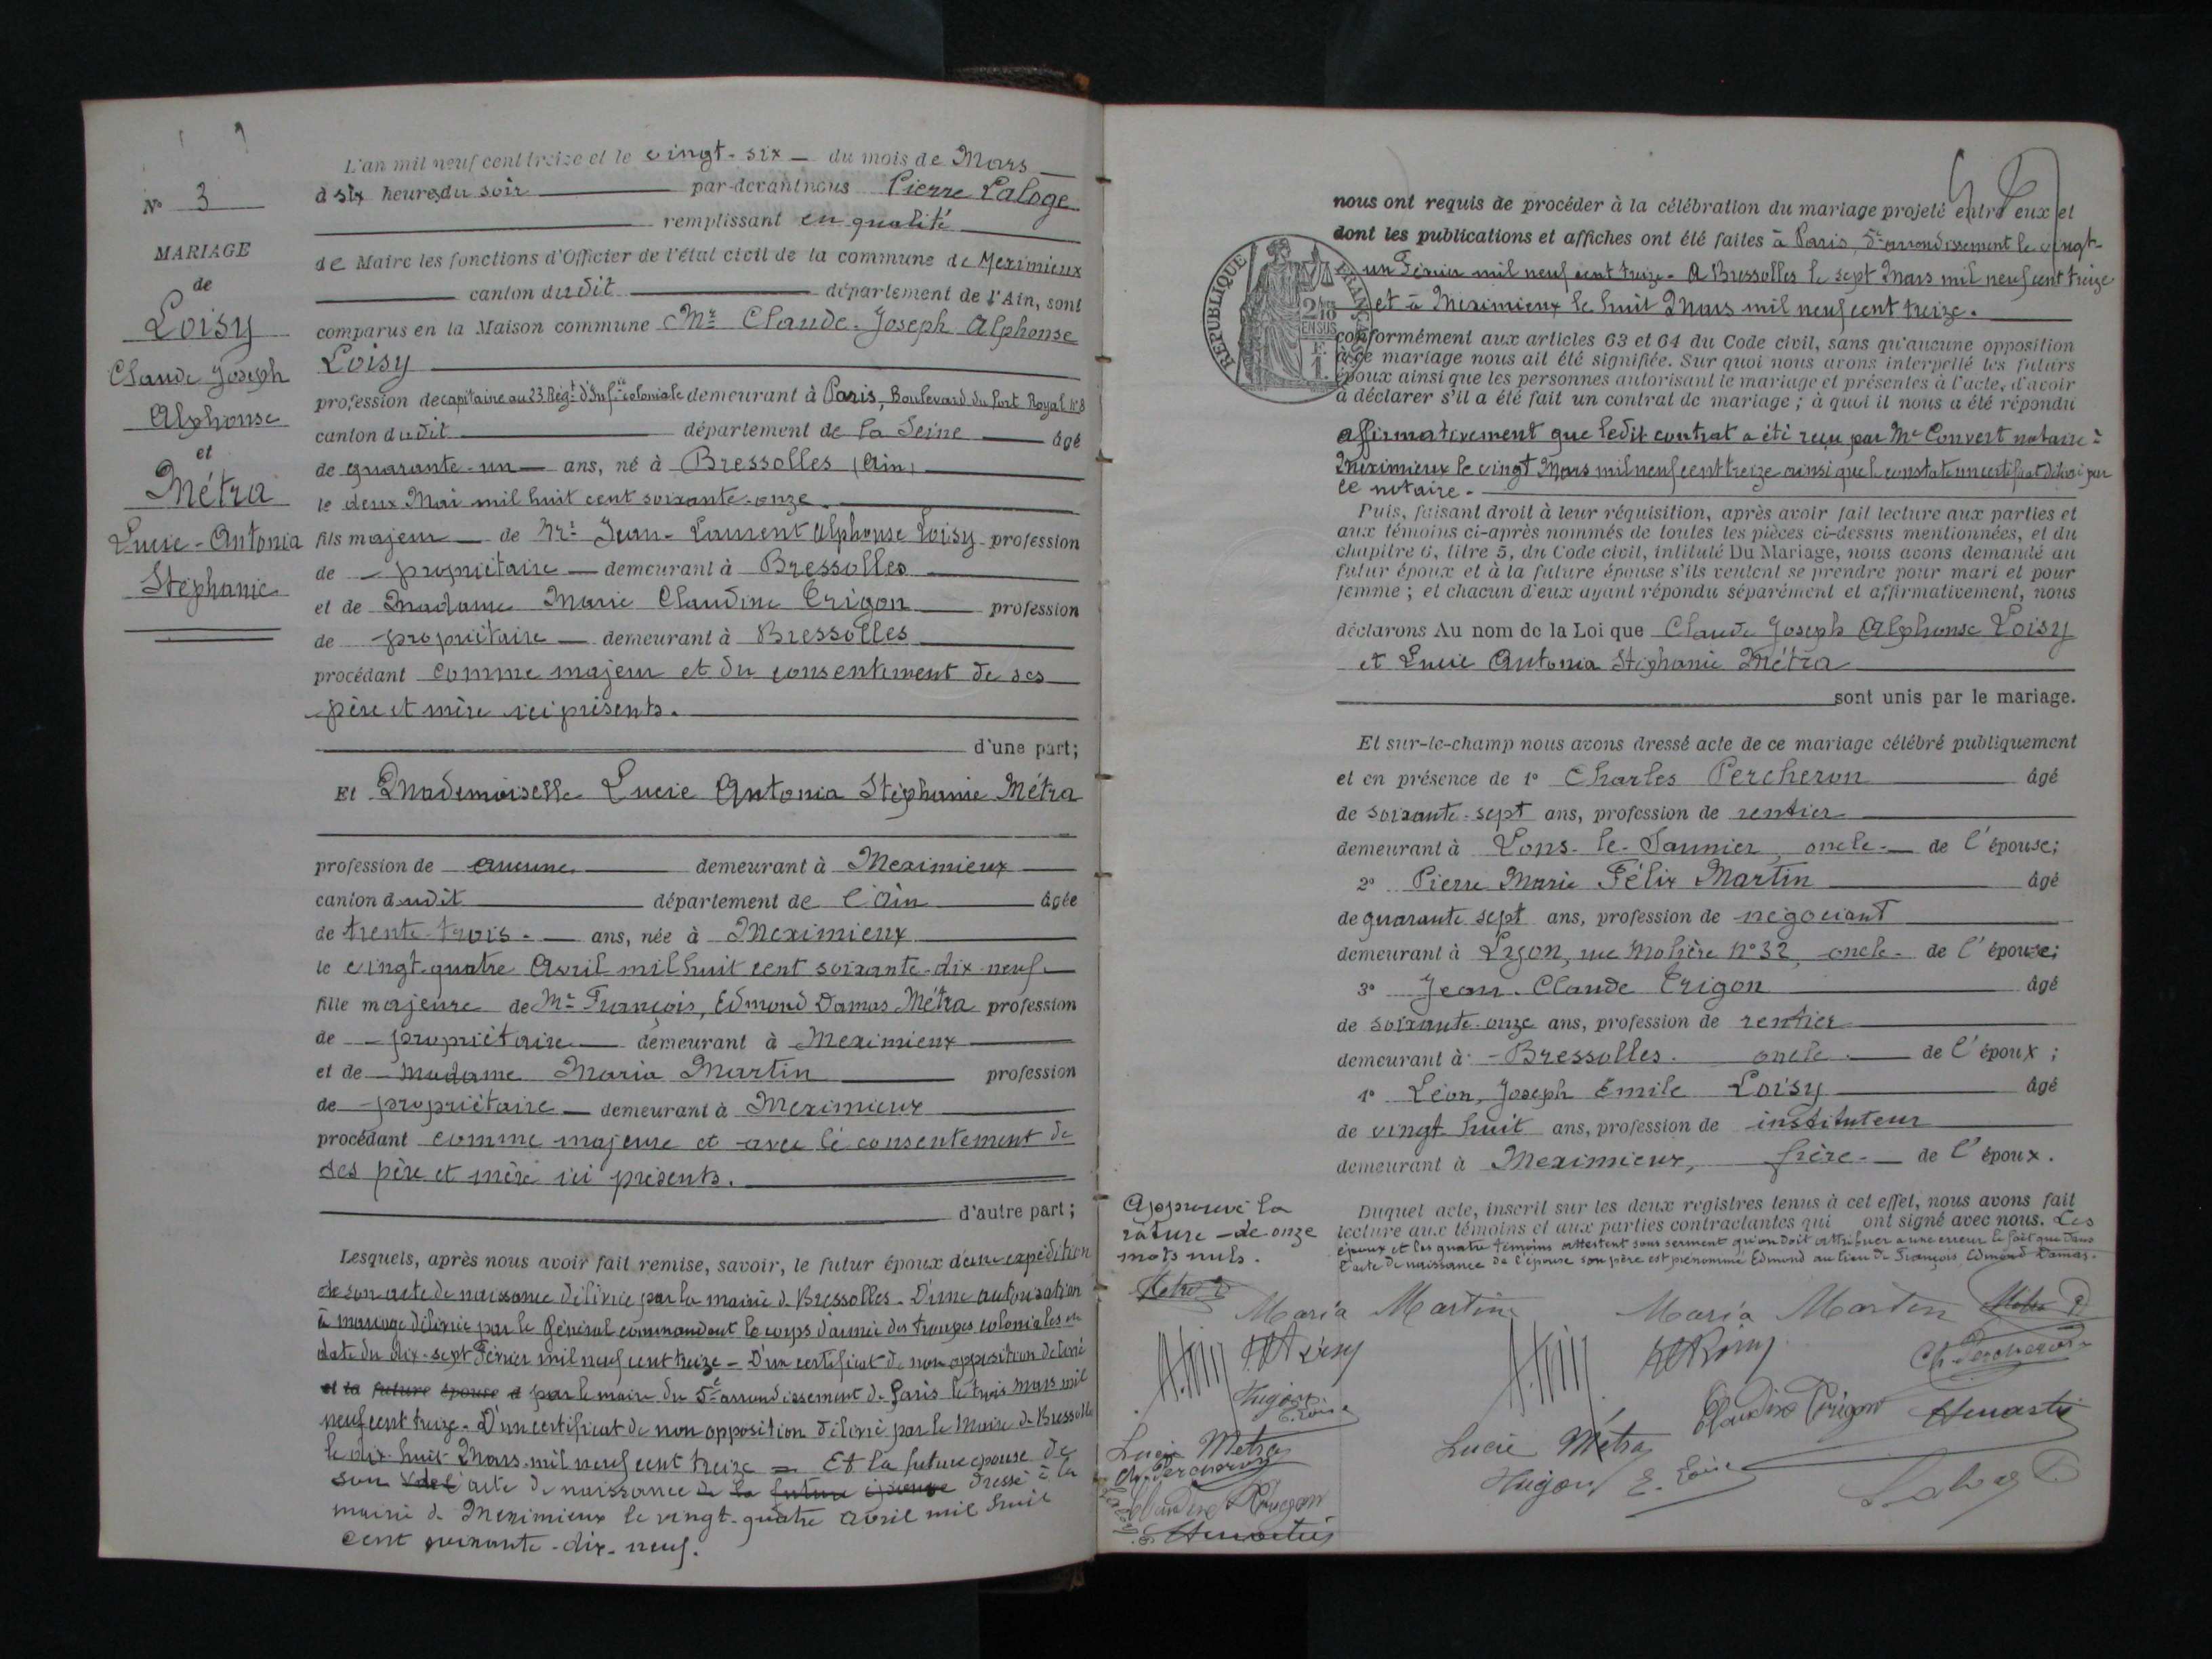 N° 3
MARIAGE
de
Loisy
Claude Joseph
Alphonse
et
Métra
Lucie-Antonia
Stéphanie
L'an mil neuf cent treize et le vingt-six du mois de Mars
à six heures du soir par-devant nous Pierre Laloge
remplissant en qualité
de Maire les fonctions d'Officier de l'état civil de la commune de Meximieux
canton dudit département de l'Ain, sont
comparus en la Maison commune Mr Claude-Joseph Alphonse
Loisy
profession de capitaine au 23 Régt d'Infie coloniale demeurant à Paris, Boulevard du Port Royal N°8
canton dudit département de la Seine âgé
de quarante-un ans, né à Bressolles (Ain)
le deux Mai mil huit cent soixante-onze
fils majeur de Mr Jean-Laurent Alphonse Loisy profession
de propriétaire demeurant à Bressolles
et de Madame Marie Claudine Trigon profession
de propriétaire demeurant à Bressolles
procédant comme majeur et du consentement de ses
père et mère ici présents.
d'une part;
Et Mademoiselle Lucie Antonia Stéphanie Métra
profession de aucune demeurant à Meximieux
canton dudit département de l'Ain âgée
de trente-trois ans, née à Meximieux
le vingt-quatre Avril mil huit cent soixante-dix-neuf
fille majeure de Mr François, Edmond Damas Métra profession
de propriétaire demeurant à Meximieux
et de Madame Maria Martin profession
de propriétaire demeurant à Meximieux
procédant comme majeure et avec le consentement de
ses père et mère ici présents.
d'autre part;
Lesquels, après nous avoir fait remise, savoir, le futur époux d'une expédition
de son acte de naissance délivrée par la mairie de Bressolles. D'une autorisation
à mariage délivrée par le Général commandant le corps d'armée des troupes coloniales en
date du dix-sept Février mil neuf cent treize - D'un certificat de non opposition délivré
et la future épouse d par le maire du 5e arrondissement de Paris le trois Mars mil
neuf cent treize - D'un certificat de non opposition délivré par le Maire de Bressolles
le dix-huit Mars mil neuf cent treize = Et la future épouse de
son acte de naissance de la future épouse dressé à la
mairie de Meximieux le vingt-quatre avril mil huit
cent soixante-dix-neuf.
nous ont requis de procéder à la célébration du mariage projeté entre eux et
dont les publications et affiches ont été faites à Paris, 5e arrondissement le vingt-
un Février mil neuf cent treize - A Bressolles le sept Mars mil neuf cent treize
et à Meximieux le huit Mars mil neuf cent treize.
RÉPUBLIQUE FRANÇAISE
conformément aux articles 63 et 64 du Code civil, sans qu'aucune opposition
à ce mariage nous ait été signifiée. Sur quoi nous avons interpellé les futurs
époux ainsi que les personnes autorisant le mariage et présentes à l'acte, d'avoir
à déclarer s'il a été fait un contrat de mariage; à quoi il nous a été répondu
affirmativement que ledit contrat a été reçu par Me Convert notaire à
Meximieux le vingt Mars mil neuf cent treize ainsi que le constate un certificat délivré par
ce notaire.
Puis, faisant droit à leur réquisition, après avoir fait lecture aux parties et
aux témoins ci-après nommés de toutes les pièces ci-dessus mentionnées, et du
chapitre 6, titre 5, du Code civil, intitulé Du Mariage, nous avons demandé au
futur époux et à la future épouse s'ils veulent se prendre pour mari et pour
femme; et chacun d'eux ayant répondu séparément et affirmativement, nous
déclarons Au nom de la Loi que Claude Joseph Alphonse Loisy
et Lucie Antonia Stéphanie Métra
sont unis par le mariage.
Et sur-le-champ nous avons dressé acte de ce mariage célébré publiquement
et en présence de 1° Charles Percheron âgé
de soixante-sept ans, profession de rentier
demeurant à Lons-le-Saunier, oncle de l'épouse;
2° Pierre Marie Félix Martin âgé
de quarante sept ans, profession de négociant
demeurant à Lyon, rue Molière N°32, oncle de l'épouse;
3° Jean-Claude Trigon âgé
de soixante-onze ans, profession de rentier
demeurant à Bressolles. oncle de l'époux;
4° Léon, Joseph Emile Loisy âgé
de vingt huit ans, profession de instituteur
demeurant à Meximieux, frère de l'époux.
Duquel acte, inscrit sur les deux registres tenus à cet effet, nous avons fait
lecture aux témoins et aux parties contractantes qui ont signé avec nous. Les
époux et les quatre témoins attestent sous serment qu'on doit attribuer a une erreur le fait que dans
l'acte de naissance de l'épouse son père est prénommé Edmond au lieu de François, Edmond Damas.
Approuvé la
rature de onze
mots nuls.
Métra
Maria Martin
Lucie Métra
Ch. Percheron
Maria Martin Métra
Ch. Percheron
Claudine Trigon
Lucie Métra
E. Loisy
Laloge